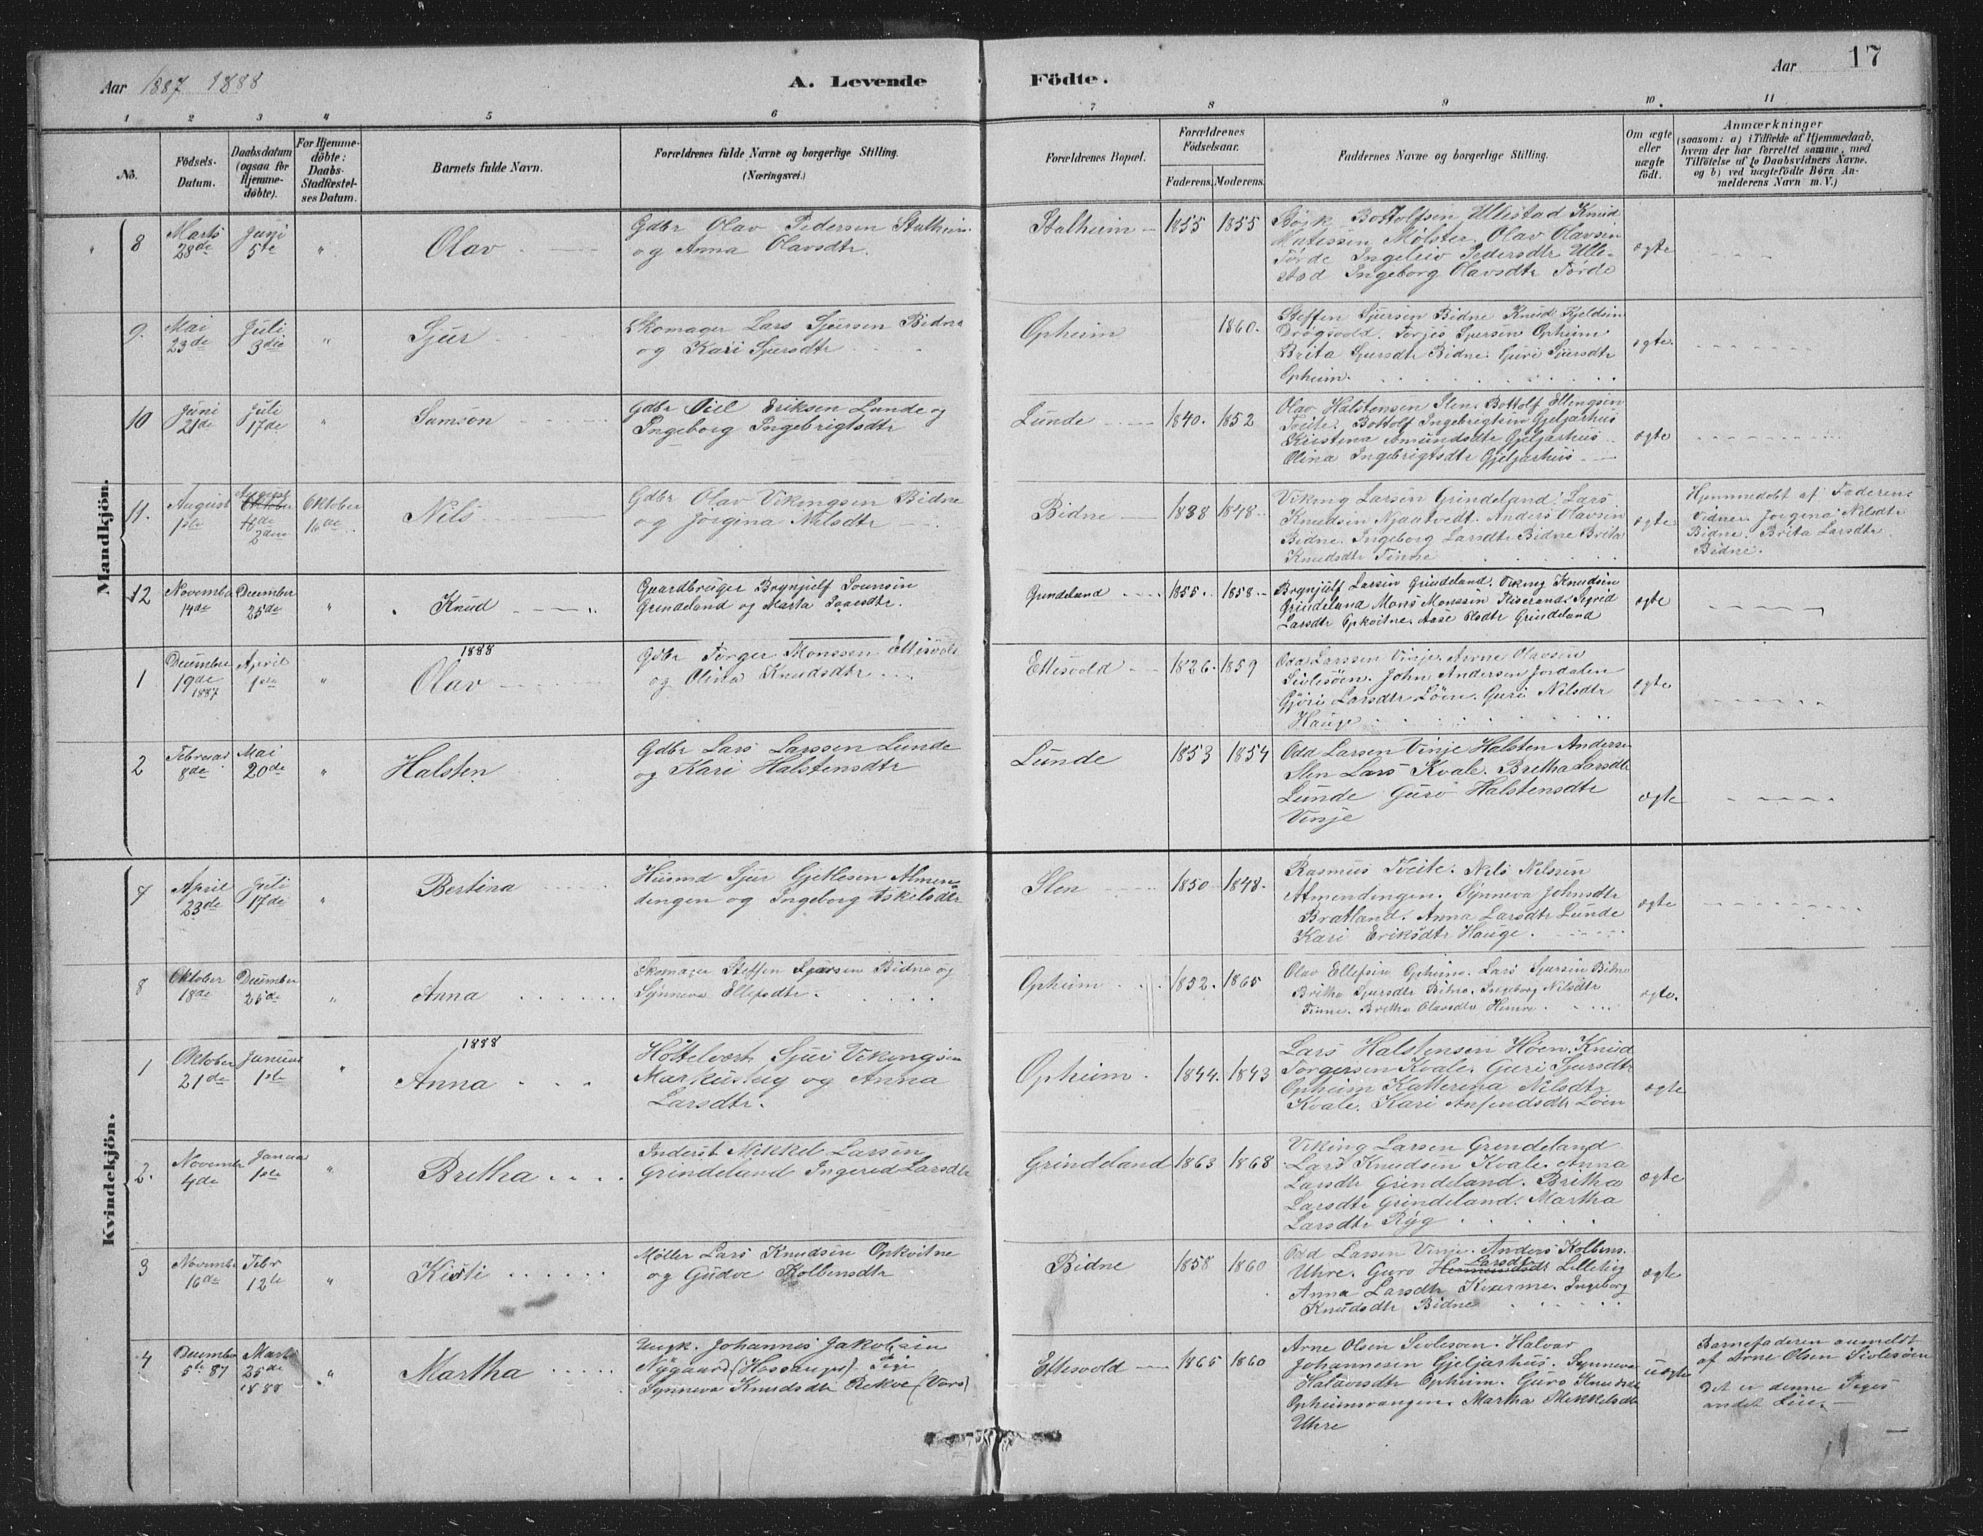 Aar 1887 1888
A. Levende Födte.
Aar 17
1 2 3 4 5 6 7 8 9 10. 11
No.
Födsels-Datum.
Daabsdatum (ogsaa for Hjemme-döbte).
For Hjemme-döbte: Daabs-Stadfæstel-ses Datum.
Barnets fulde Navn.
Forældrenes fulde Navne og borgerlige Stilling. (Næringsvei.)
Forældrenes Bopæl.
Forældrenes Födselsaar.
Faderens. Moderens.
Faddernes Navne og borgerlige Stilling.
Om ægte eller uægte födt.
Anmærkninger
(saasom: a) i Tilfælde af Hjemmedaab,
hvem der har forrettet samme, med
Tilföielse af to Daabsvidners Navne.
og b) ved uægtefödte Börn An-
melderens Navn m. V.)
Mandkjön.
8 Marts 28de Juni 5te " Olav
Gdbr Olav Pedersen Stalheim
og Anna Olavsdtr
Stalheim 1855 1855
Bottolfsen Ullestad Knud
Matissen Mølster. Olav Olavsen
Førde Ingeleiv Pedersdtr Ulle-
stad Ingeborg Olavsdtr Førde
ægte
9. Mai 23de Juli 3die " Sjur
Skomager Lars Sjursen Bidne
og Kari Sjursdtr
Opheim 1860.
Steffen Sjursen Bidne Knud
Torjes Sjursen Opheim
Brita Sjursdtr Bidne. Guri Sjursdtr
Opheim.
ægte.
10 Juni 21de Juli 17de " Samson
Gdbr Eriksen Lunde og
Ingeborg Ingebrigtsdtr
Lunde 1840. 1852
Olav Halstensen Slen. Bottolf Ellingsen
Tveite. Bottolf Ingebrigtsen Gjeljarhus
Kristina Amundsdtr Gjeljarhus
Olina Ingebrigtsdtr Gjeljarhus
ægte
11. August 1ste Oktober 16de Nils
Gdbr Olav Vikingsen Bidne
og Jorgina Nilsdtr
Bidne 1838 1848
Viking Larsen Grindeland. Lars
Knudsen Anders Olavsen
Bidne. Ingeborg Larsdtr Bidne Brita
Knudsdtr Finne
ægte
Hjemmedøbt af Faderen
Vidner. Jorgina Nilsdtr
Bidne. Brita Larsdtr
Bidne.
12 November 14de December 25de " Knud
Gaardbruger Brynjulf
Grindeland og Marta
Grindeland 1855. 1858.
Brynjulf Larsen Grindeland. Viking Knudsen
Grindeland Mons Monssen Sigrid
Larsdtr Opkvitne. Aase Grindeland
ægte
1888
1 December 19de 1887 April 1ste " Olav
Gdbr Torger Monssen Ettesvold
og Olina Knudsdtr
Ettesvold 1826. 1859
Odd Larssen Vinje. Arne Olavsen
Sivlesöen. John Andersen Jordalen
Larsdtr Løen. Guri Nilsdtr
Hauge
ægte
2 Februar 8de Mai 20de " Halsten
Gdbr Lars Larssen Lunde
og Kari Halstensdtr
Lunde 1853 1854
Odd Larsen Vinje Halsten Anderse
Slen Lars Kvale. Bretha Larsdtr
Lunde Guro Halstensdtr
Vinje
ægte
Kvindekjön.
7 April 23de Juli 17de " Bertina
Husmd Sjur Gjetlesen Almen-
dingen og Ingeborg Askilsdtr
Slen 1850 1848.
Rasmus Tveite. Nils Nilsen
Almendingen. Synneva Johnsdtr
Bratland. Anna Larsdtr Lunde
Kari Eriksdtr Hauge.
ægte
8 Oktober 18de December 26de " Anna
Skomager Steffen Sjursen Bidne og
Synneva Ellefsdtr.
Opheim 1852. 1865
Olav Ellefsen Opheim. Lars Sjursen Bidne
Britha Sjursdtr Bidne. Ingeborg Nilsdtr
Finne. Britha Olavsdtr
ægte.
1888
1 Oktober 21de Januar 1ste " Anna
Hôttelvært Sjur Vikingsen
Markusteig og Anna
Larsdtr.
Opheim. 1844. 1843
Lars Halstensen Høen. Knud
Torgersen Kvale. Guri Sjursdtr
Opheim Katterina Nilsdtr
Kvale. Kari Anfindsdtr Løen
ægte
2. November 4de Januar 1ste " Bretha
Inderst Mikkel Larsen
Grindeland Ingerid Larsdtr
Grindeland 1863 1868
Viking Larsen Grendeland
Lars Knudsen Kvale. Anna
Larsdtr Grindeland. Britha
Larsdtr Grindeland. Martha
Larsdtr Ryg
ægte
3 November 16de Febr 12te " Kisti
Møller Lars Knudsen Opkvitne
og Gudve Kolbensdtr
Bidne 1858 1860
Odd Larsen Vinje. Anders Kolbens.
Uhre. Guro Larsdtr Lilleteig
Anna Larsdtr Kvarme. Ingeborg
Knudsdtr Bidne
ægte
4 December 5te 87 Marts 25de 1888 " Martha
Ungk. Johannes Jakobsen
Nygaard (Hossanger). Pige
Synneva Knudsdtr Rekve (Vors)
Ettesvold 1865 1860
Arne Olsen Sivlesøen. Halvar
Johannesen Gjeljarhus. Synneva
Halavrsdtr Opheim. Guro Knudsdtr
Opheimsvangen. Martha Mikkelsdtr
Uhre
uægte
Barnefaderen anmeldt
af Arne Olsen Sivlesøen
Det er denne Piges
andet Leie.